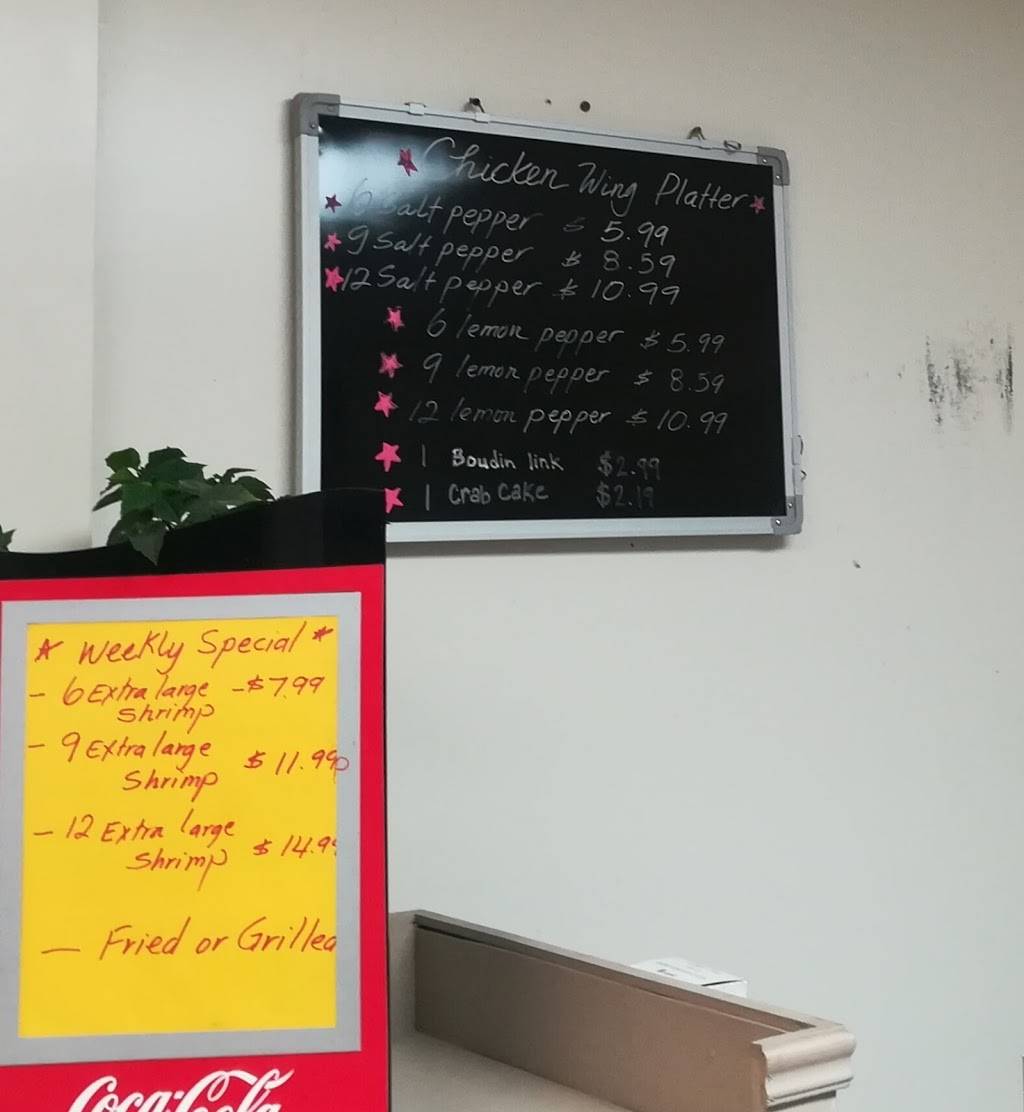 Chicken Wing Platter
6 Salt pepper $ 5.99
9 Salt pepper $ 8.59
12 Salt pepper $ 10.99
6 lemon pepper $ 5.99
9 lemon pepper $ 8.59
12 lemon pepper $ 10.99
1 Boudin link $2.99
1 Crab Cake $2.19
Weekly Special
- 6 Extra large - $7.99
Shrimp
- 9 Extra large $ 11.99
Shrimp
- 12 Extra large $ 14.99
Shrimp
- Fried or Grilled
Coca-Cola